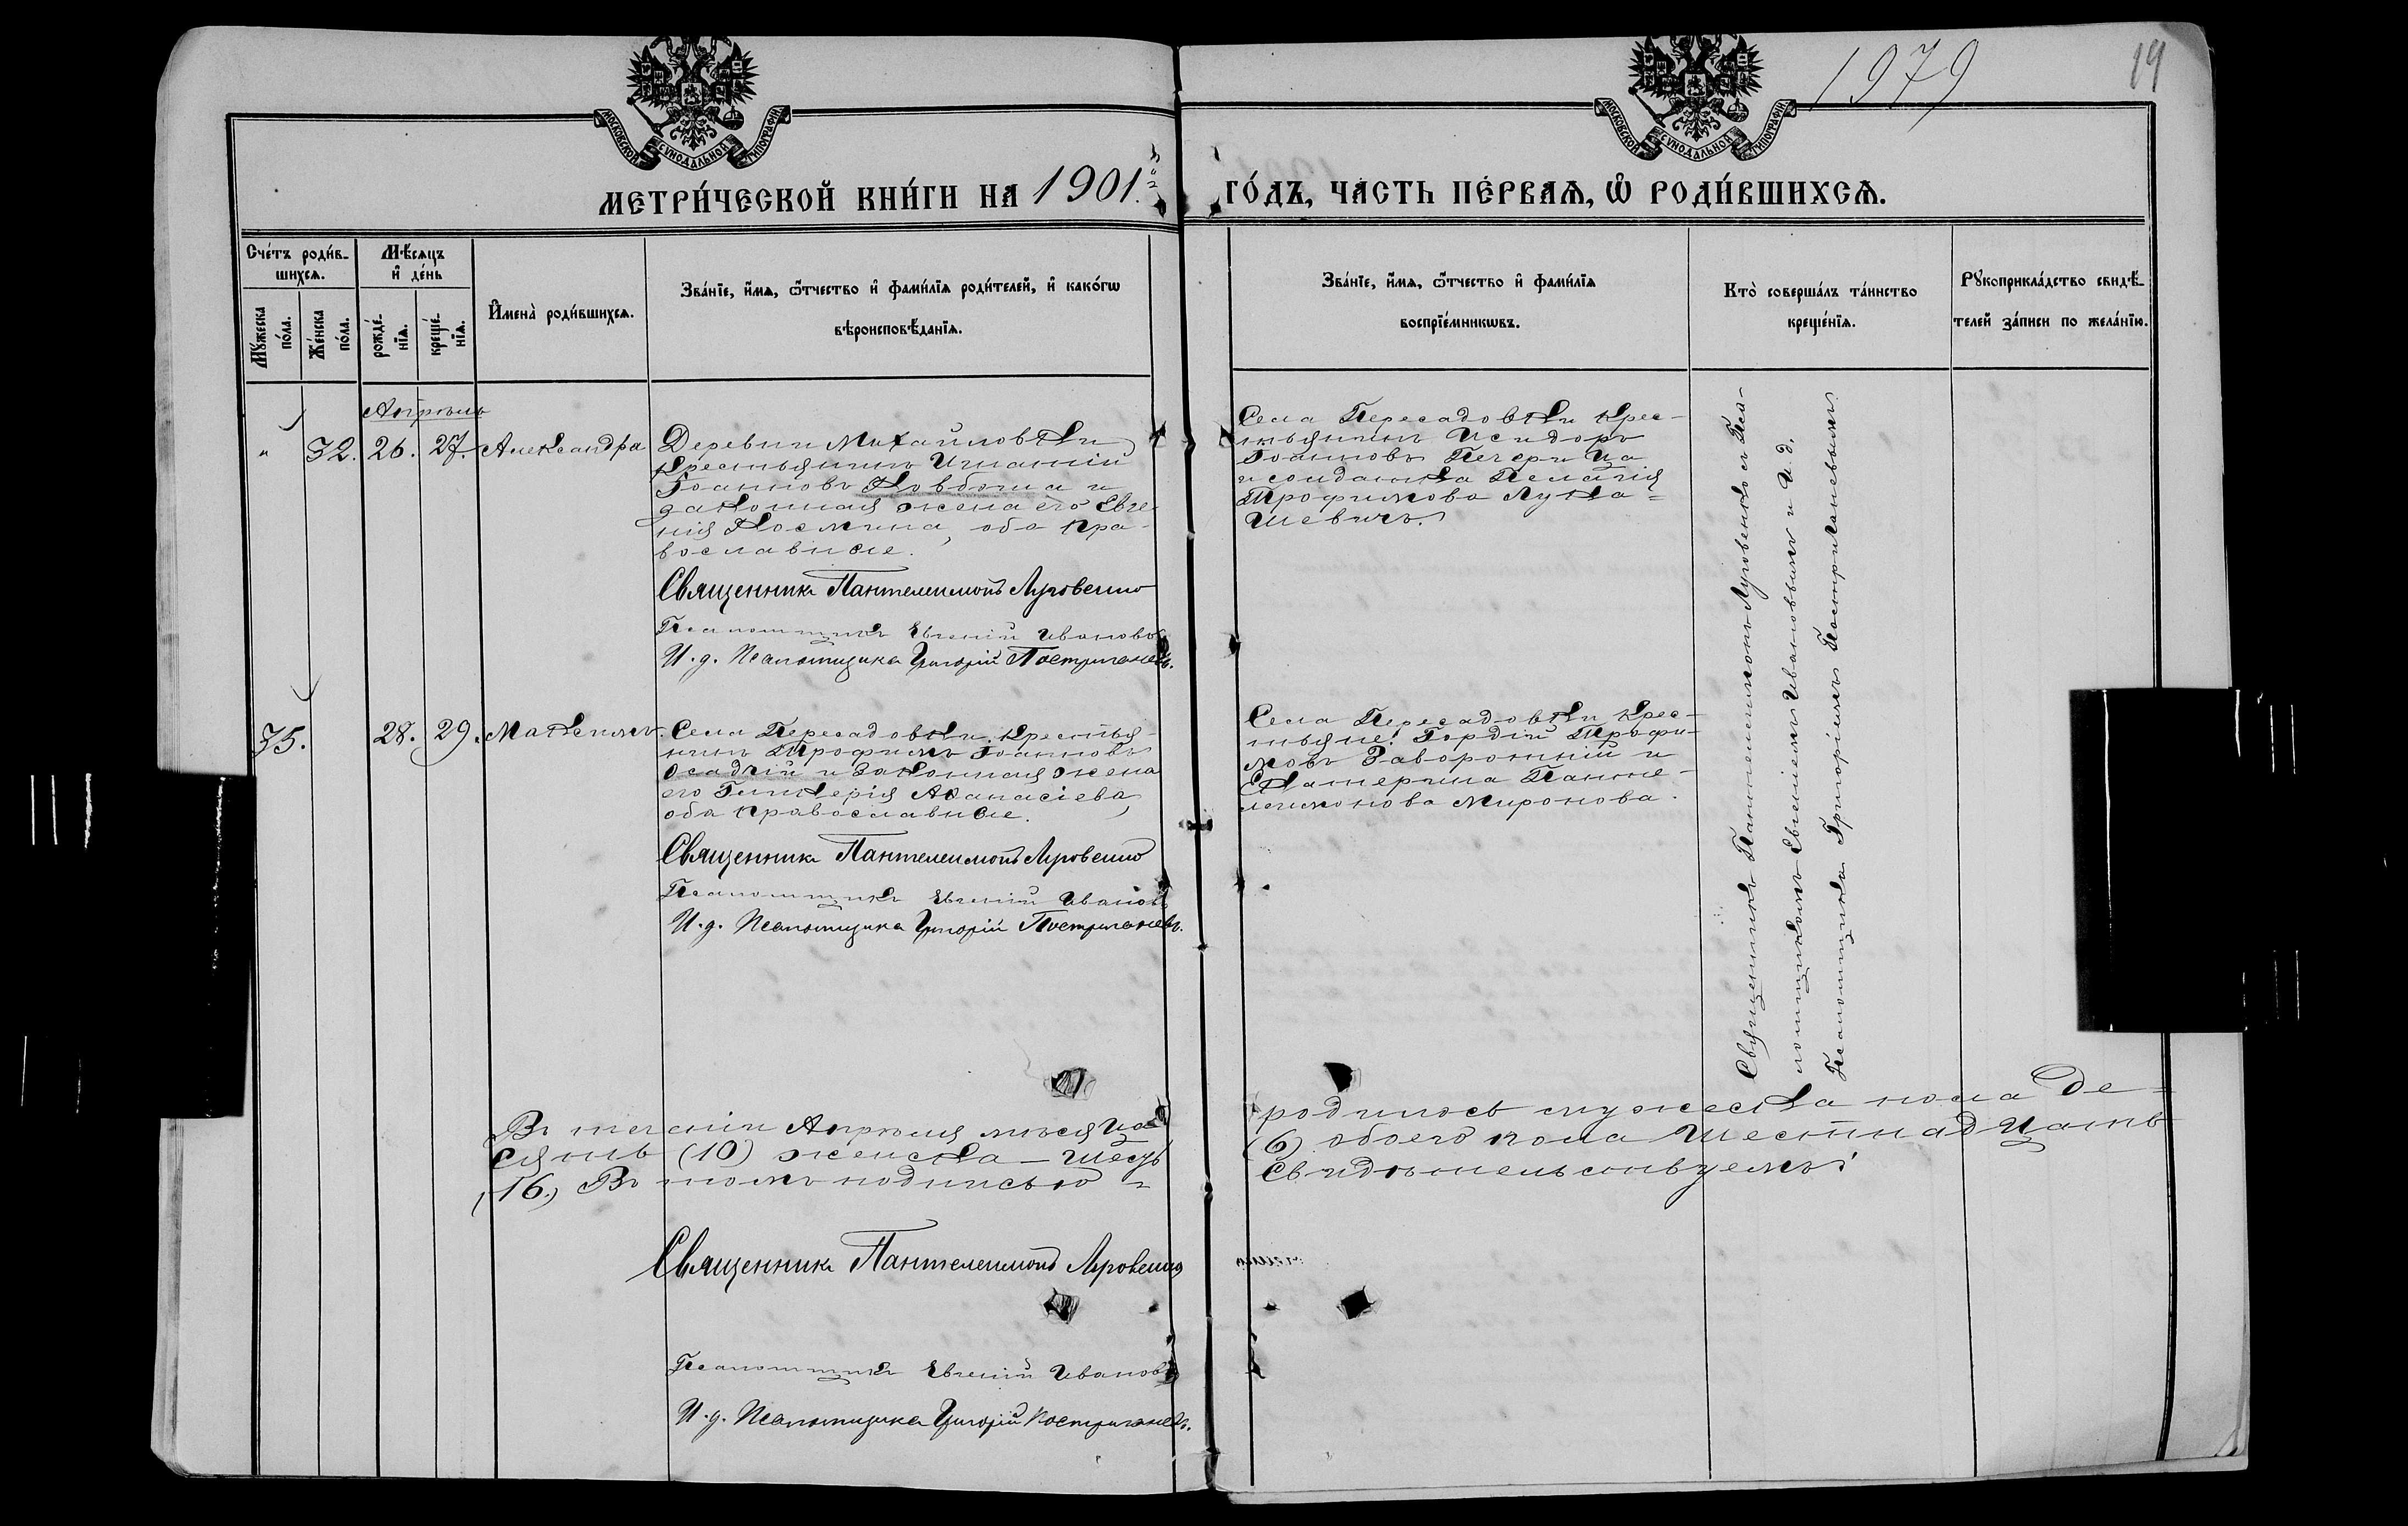 1979
19
МОСКОВСКОЙ СѴНОДАЛЬНОЙ ТИПОГРАФІИ
МОСКОВСКОЙ СѴНОДАЛЬНОЙ ТИПОГРАФІИ
МЕТРИ́ЧЕСКОЙ КНИ́ГИ НА 1901.й
ГО́ДЪ, ЧАСТЬ ПЕ́РВАѦ, Ѡ҆ РОДИ́ВШИХСѦ.
Сче́тъ роди́в-
шихсѧ.
Мꙋ́жеска по́ла.
Же́нска по́ла.
Мѣ́сѧцъ
и҆ де́нь
рожде́-
нїѧ.
креще́-
нїѧ.
И҆мена̀ роди́вшихсѧ.
Зва́нїе, и҆́мѧ, ѻ҆́тчество и҆ фами́лїѧ роди́телей, и҆ како́гѡ
вѣроисповѣ́данїѧ.
Зва́нїе, и҆́мѧ, ѻ҆́тчество и҆ фами́лїѧ
воспрїе́мникѡвъ.
Кто̀ соверша́лъ та́инство
креще́нїѧ.
Рꙋкоприкла́дство свидѣ́-
телей за́писи по жела́нїю.
Апрѣль
" 32. 26. 27. Александра
Деревни Михайловки
крестьянинъ Игнатій
Іоанновъ Ковбаша и
законная жена его Евге-
нія Космина, оба пра-
вославные.
Священникъ Пантелеимонъ Луговенко
Псаломщикъ Евгеній Ивановъ
И. д. Псаломщика Григорій
Села Пересадовки крес-
тьянинъ Исидоръ
Іоанновъ Печерица
и солдатка Пелагія
Трофимова Лука=
шевичъ.
Священникъ Пантелеимонъ Луговенко съ Пса-
ломщикомъ Евгеніемъ Ивановымъ и И. д.
Псаломщика Григоріемъ
35. 28. 29. Максимъ.
Села Пересадовки крестья-
нинъ Трофимъ Іоанновъ
Осадчій и законная жена
его Гликерія Аѳанасіева,
оба православные.
Священникъ Пантелеимонъ Луговенко
Псаломщикъ Евгеній Ивановъ
И. д. Псаломщика Григорій
Села Пересадовки крес-
тьяне: Гордій Трофи-
мовъ Заворотній и
Екатерина Пантне-
леимонова Миронова.
Въ теченіи Апрѣля мѣсяца родилось мужеска пола де=
сять (10) женска – шесть (6) обоего пола шестнадцать
(16.) Въ томъ подписью = свидѣтельствуемъ:
Священникъ Пантелеимонъ Луговенко
Псаломщикъ Евгеній Ивановъ
И. д. Псаломщика Григорій